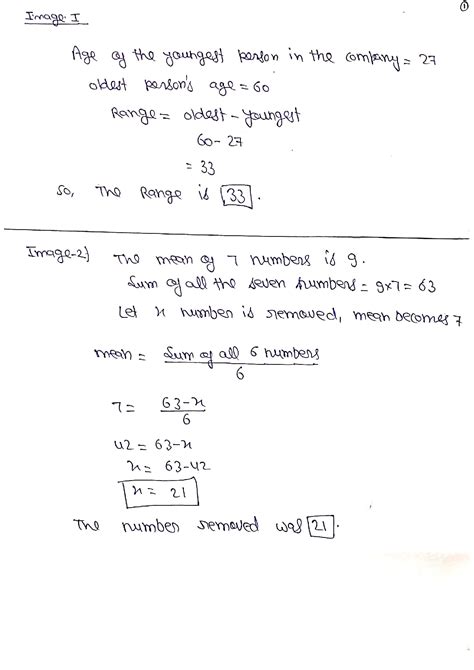 ①
Image-I
Age of the youngest person in the company = 27
oldest person's age = 60
Range = oldest - youngest
60 - 27
= 33
So, The Range is 33.
Image-2) The mean of 7 numbers is 9.
Sum of all the seven numbers = 9x7 = 63
Let x number is removed, mean becomes 7
mean = Sum of all 6 numbers
6
7 = 63-x
6
42 = 63-x
x = 63-42
x = 21
The number removed was 21.